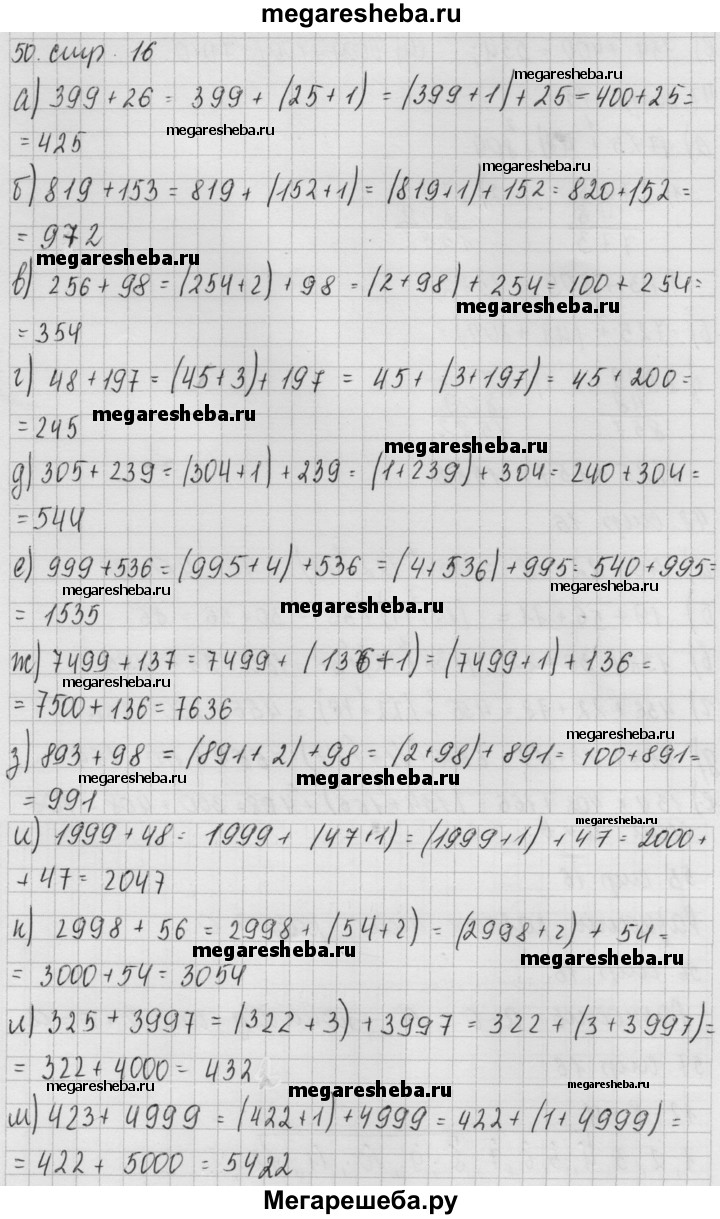 megaresheba.ru
50. стр. 16
megaresheba.ru
а) 399 + 26 = 399 + (25 + 1) = (399 + 1) + 25 = 400 + 25 =
megaresheba.ru
= 425
megaresheba.ru
б) 819 + 153 = 819 + (152 + 1) = (819 + 1) + 152 = 820 + 152 =
= 972
megaresheba.ru
в) 256 + 98 = (254 + 2) + 98 = (2 + 98) + 254 = 100 + 254 =
megaresheba.ru
= 354
г) 48 + 197 = (45 + 3) + 197 = 45 + (3 + 197) = 45 + 200 =
megaresheba.ru
= 245
megaresheba.ru
д) 305 + 239 = (304 + 1) + 239 = (1 + 239) + 304 = 240 + 304 =
= 544
е) 999 + 536 = (995 + 4) + 536 = (4 + 536) + 995 = 540 + 995 =
megaresheba.ru megaresheba.ru
= 1535
megaresheba.ru
ж) 7499 + 137 = 7499 + (136 + 1) = (7499 + 1) + 136 =
megaresheba.ru
= 7500 + 136 = 7636
megaresheba.ru
з) 893 + 98 = (891 + 2) + 98 = (2 + 98) + 891 = 100 + 891 =
megaresheba.ru megaresheba.ru
= 991
megaresheba.ru
и) 1999 + 48 = 1999 + (47 + 1) = (1999 + 1) + 47 = 2000 +
+ 47 = 2047
к) 2998 + 56 = 2998 + (54 + 2) = (2998 + 2) + 54 =
megaresheba.ru megaresheba.ru
= 3000 + 54 = 3054
л) 325 + 3997 = (322 + 3) + 3997 = 322 + (3 + 3997) =
= 322 + 4000 = 432
megaresheba.ru megaresheba.ru megaresheba.ru
м) 423 + 4999 = (422 + 1) + 4999 = 422 + (1 + 4999) =
= 422 + 5000 = 5422
Мегарешеба.ру